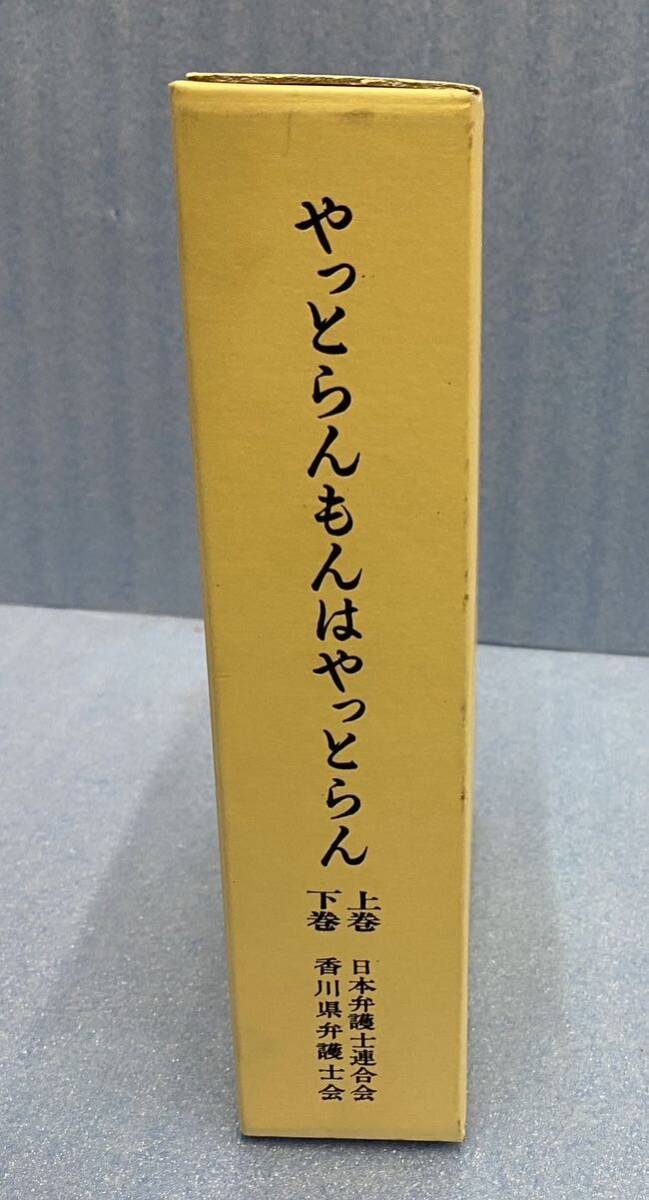 やっとらんもんはやっとらん
上巻 日本弁護士連合会
下巻 香川県弁護士会